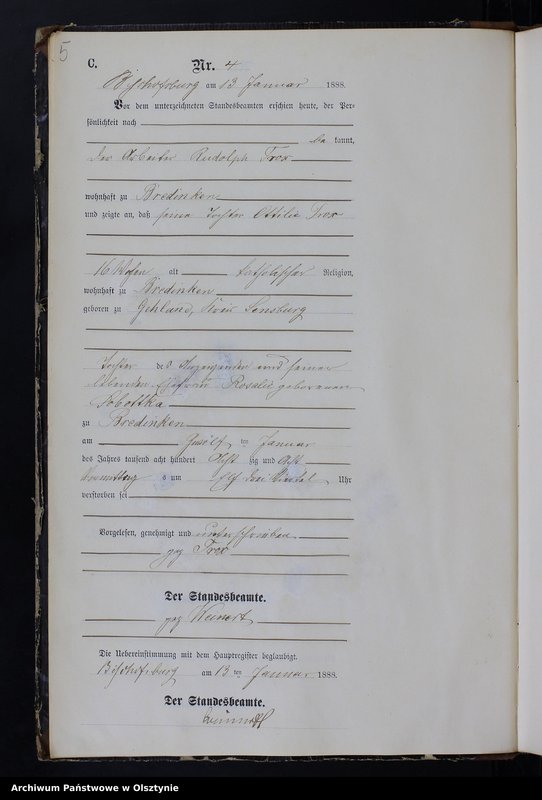 5
C.
Nr. 4
Bischofsburg am 13 Januar 1888.
Vor dem unterzeichneten Standesbeamten erschien heute, der Per-
sönlichkeit nach
be kannt,
der Arbeiter Rudolph Trox
wohnhaft zu Bredinken
und zeigte an, daß seine Tochter Ottilie Trox
16 Wochen alt katholischer Religion,
wohnhaft zu Bredinken
geboren zu Gehland, Kreis Sensburg
Tochter des Anzeigenden und seiner
Ehefrau Rosalie geborenen
Sobottka
zu Bredinken
am zwölf ten Januar
des Jahres tausend acht hundert Acht zig und Acht
Vormittags um elf drei Viertel Uhr
verstorben sei
Vorgelesen, genehmigt und unterschrieben
gez Trox
Der Standesbeamte.
gez Weinert
Die Uebereinstimmung mit dem Hauptregister beglaubigt.
Bischofsburg am 13 ten Januar 1888.
Der Standesbeamte.
Archiwum Państwowe w Olsztynie